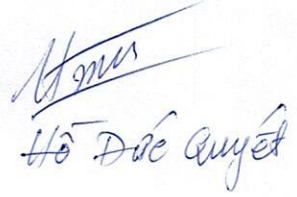 Hồ Đức Quyết